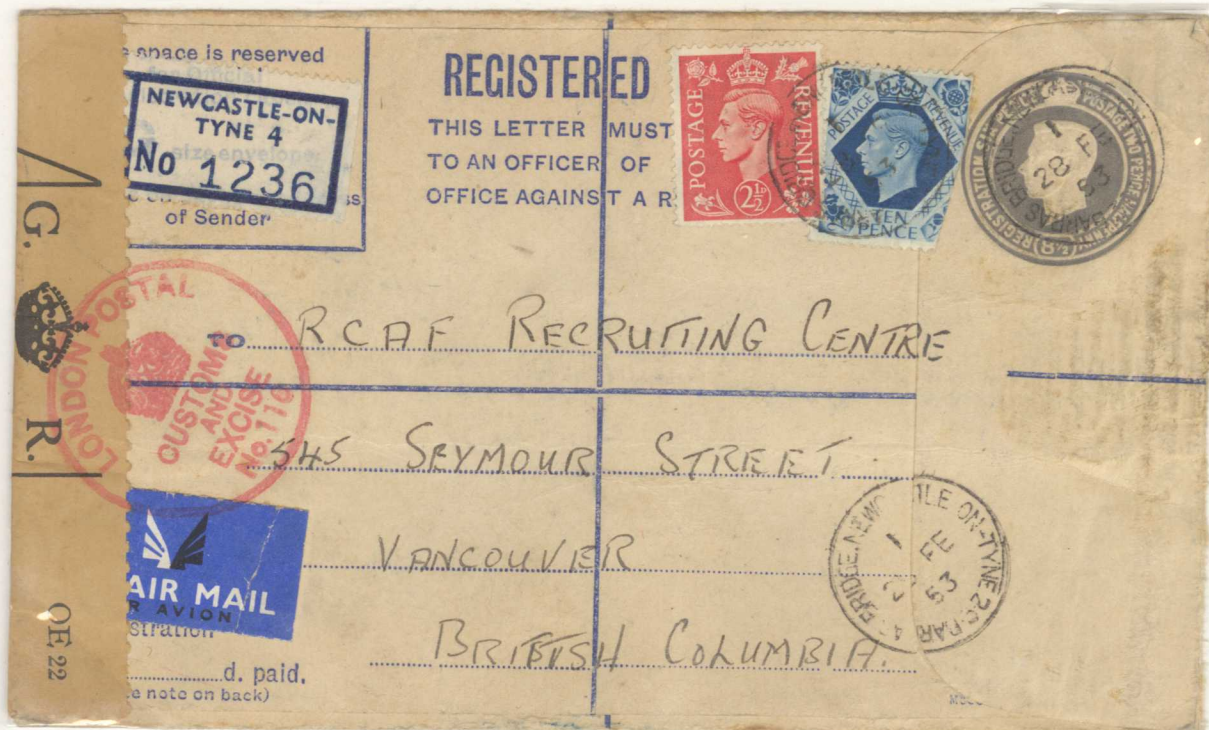 e space is reserved
NEWCASTLE-ON-
TYNE 4
No 1236
of Sender
REGISTERED
THIS LETTER MUST
TO AN OFFICER OF
OFFICE AGAINST A R
POSTAGE REVENUE
2½D
POSTAGE REVENUE
TEN
PENCE
BARRAS BRIDGE
1
28 FE
53
G. R.
OE 22
LONDON POSTAL
CUSTOMS
AND
EXCISE
No. 110
TO RCAF RECRUITING CENTRE
545 SEYMOUR STREET
VANCOUVER
BRITISH COLUMBIA.
AIR MAIL
R AVION
stration
d. paid.
e note on back)
BRIDGE. NEWCASTLE-ON-TYNE 2
1
FE
53